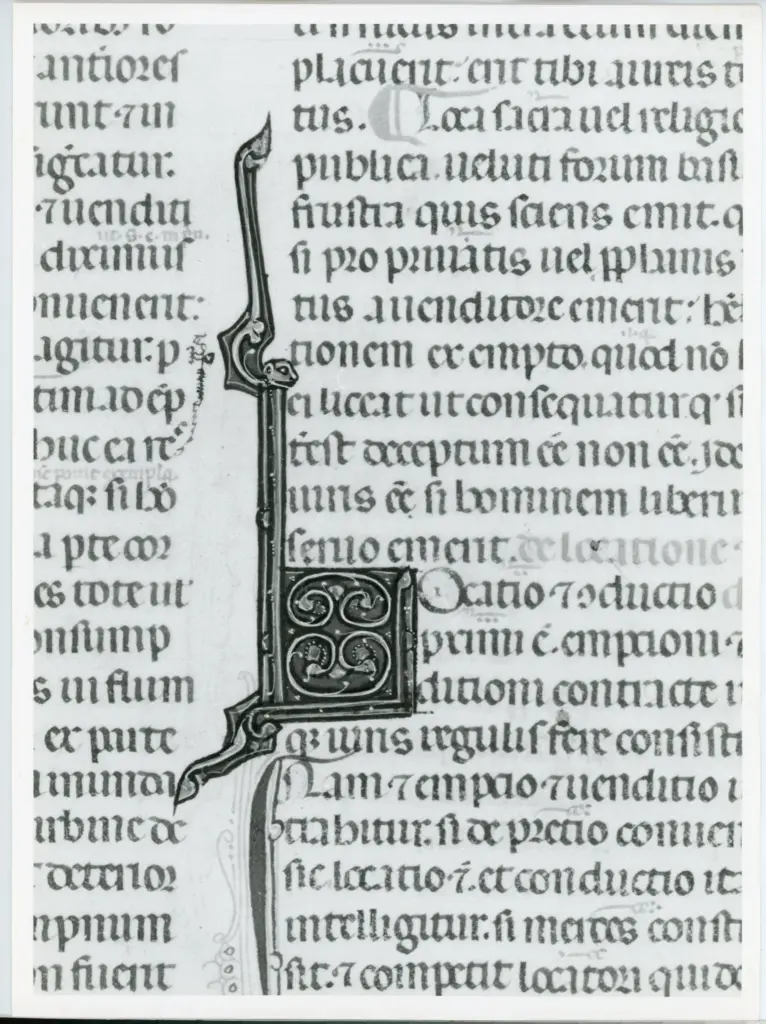 antiores
unt ⁊ in
ꝛuenditi
diximus
onuenerit:
agitur: p
tim ad ep̄
huc ea re
taqꝫ si ho
a pte cor
es tote ut
onsump
s in flum
ex pute
inunda
urbine de
deterior
mpnum
n fuerit
placuerit: erit tibi aureis
tus. Loca sacra uel religio
publica. ueluti forum basi
frustra quis sciens emit. q
si pro priuatis uel ꝓphanis
tus a uenditore emerit: hē
tionem ex empto. quod nō
ei liceat ut consequatur qͥ
t̄est deceptum eē non eē. ide
iuris ē si hominem liberū
seruo emerit. de locatione
Locatio ⁊ ↄductio
proxima ē. emptioni ⁊
ditioni contracte
qꝫ iuris regulis fere consisti
Nam ⁊ emptio ⁊ uenditio
trahitur. si de precio conuen
sic locatio ⁊. et conductio it
intelligitur. si merces consti
sit. ⁊ competit locatori quide